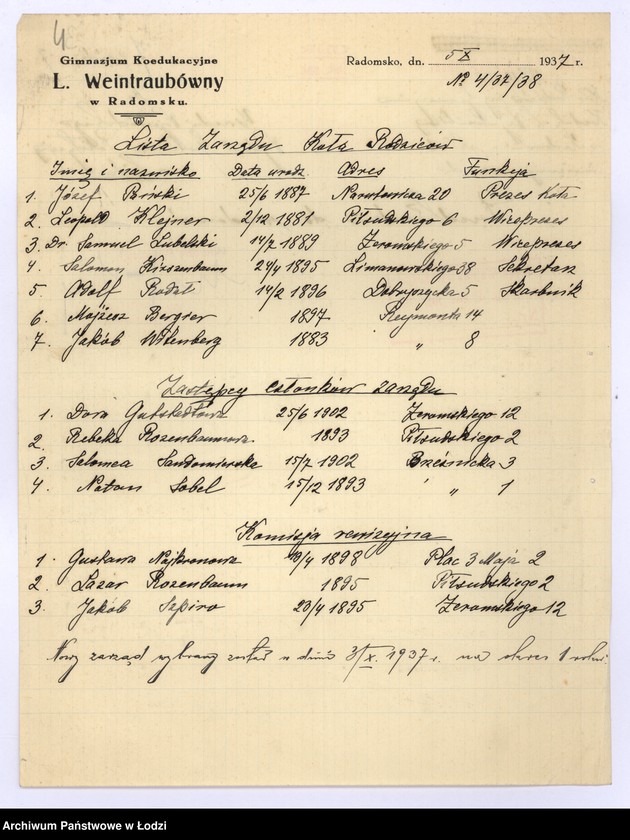 4.
Gimnazjum Koedukacyjne
L. Weintraubówny
w Radomsku.
Radomsko, dn. 5 X 1937 r.
No 4/37/38
Lista Zarządu Koła Rodziców
Imię i nazwisko Data urodz. Adres Funkcja
1. Józef Biński 25/6 1887 Narutowicza 20 Prezes Koła
2. Leopold Klejner 2/12 1881 Piłsudskiego 6 Wiceprezes
3. Dr. Samuel Lubelski 14/7 1889 Żeromskiego 5 Wiceprezes
4. Salomon Kirszenbaum 24/4 1895 Limanowskiego 38 Sekretarz
5. Adolf Rodał 14/2 1896 Dobryszycka 5 Skarbnik
6. Mojżesz Bergier 1897 Reymonta 14
7. Jakób Witenberg 1883 " 8
Zastępcy członków zarządu
1. Dora 25/6 1902 Żeromskiego 12
2. Rebeka Rozenbaumowa 1893 Piłsudskiego 2
3. Salomea Sandomierska 15/7 1902 Brzeźnicka 3
4. Natan Sobel 15/12 1893 " " 1
Komisja rewizyjna
1. Gustawa Najkronowa /4 1898 Plac 3 Maja 2
2. Lazar Rozenbaum 1895 Piłsudskiego 2
3. Jakób Szpiro 23/4 1895 Żeromskiego 12
Nowy zarząd wybrany został w dniu 3/X. 1937 r. na okres 1 roku.
Archiwum Państwowe w Łodzi